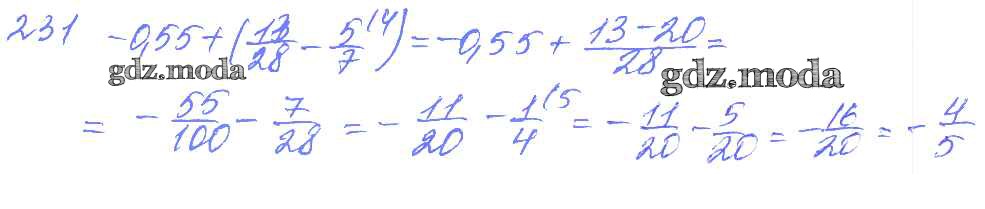 231 -0,55+(13/28 - 5/7^(4)) = -0,55 + (13-20)/28 =
gdz.moda
gdz.moda
= - 55/100 - 7/28 = - 11/20 - 1/4^(5 = - 11/20 - 5/20 = - 16/20 = - 4/5